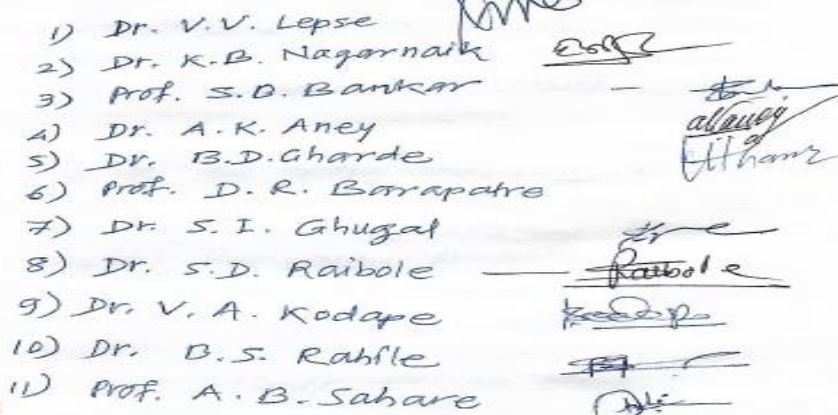 1) Dr. V.V. Lepse
2) Dr. K.B. Nagarnaik
3) Prof. S.D. Bankar -
4) Dr. A.K. Aney
5) Dr. B.D. Gharde
6) Prof. D.R. Barapatre
7) Dr. S.I. Ghugal
8) Dr. S.D. Raibole — Raibole
9) Dr. V.A. Kodape
10) Dr. B.S. Rahile
11) Prof. A.B. Sahare